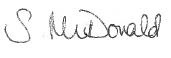 S. McDonald